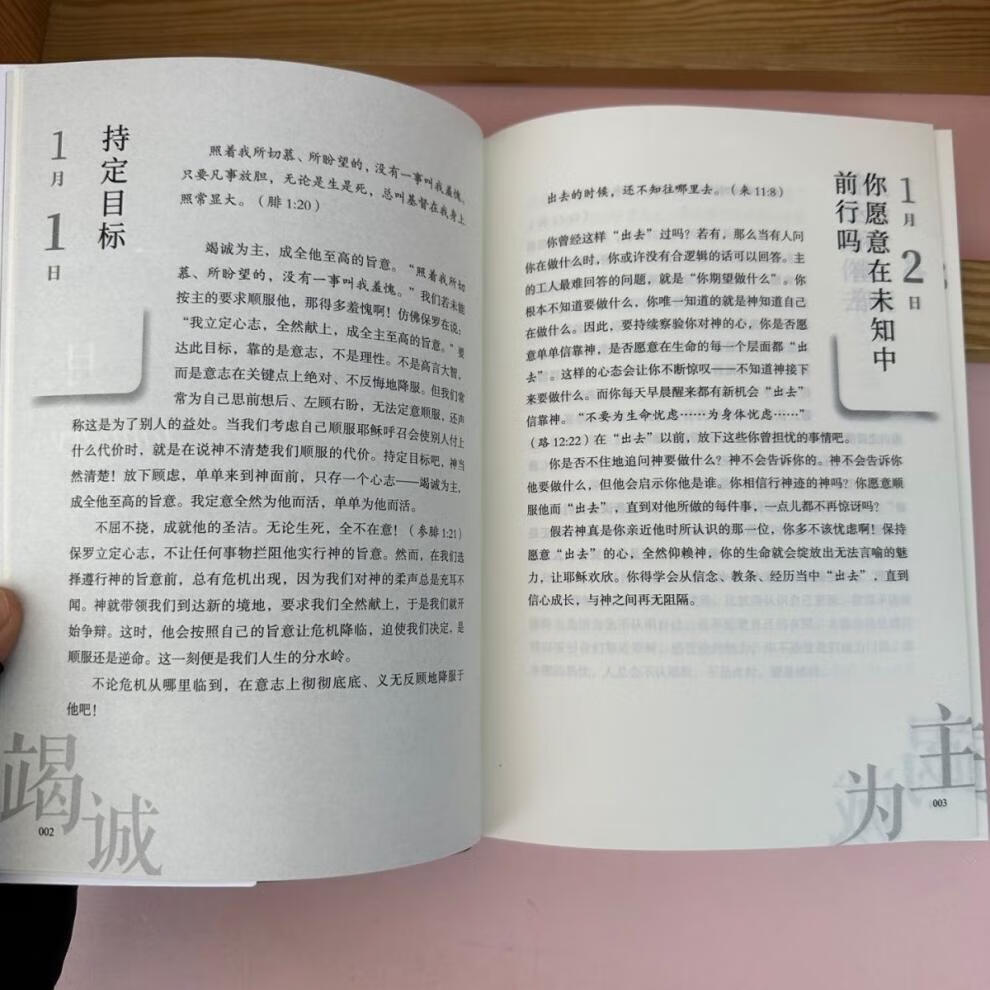 1月1日
持定目标
照着我所切慕、所盼望的，没有一事叫我羞愧，
只要凡事放胆，无论是生是死，总叫基督在我身上
照常显大。（腓 1:20）
竭诚为主，成全他至高的旨意。“照着我所切
慕、所盼望的，没有一事叫我羞愧。”我们若未能
按主的要求顺服他，那得多羞愧啊！仿佛保罗在说：
“我立定心志，全然献上，成全主至高的旨意。”要
达此目标，靠的是意志，不是理性。不是高言大智，
而是意志在关键点上绝对、不反悔地降服。但我们常
常为自己思前想后、左顾右盼，无法定意顺服，还声
称这是为了别人的益处。当我们考虑自己顺服耶稣呼召会使别人付上
什么代价时，就是在说神不清楚我们顺服的代价。持定目标吧，神当
然清楚！放下顾虑，单单来到神面前，只存一个心志——竭诚为主，
成全他至高的旨意。我定意全然为他而活，单单为他而活。
不屈不挠，成就他的圣洁。无论生死，全不在意！（参腓 1:21）
保罗立定心志，不让任何事物拦阻他实行神的旨意。然而，在我们选
择遵行神的旨意前，总有危机出现，因为我们对神的柔声总是充耳不
闻。神就带领我们到达新的境地，要求我们全然献上，于是我们就开
始争辩。这时，他会按照自己的旨意让危机降临，迫使我们决定，是
顺服还是逆命。这一刻便是我们人生的分水岭。
不论危机从哪里临到，在意志上彻彻底底、义无反顾地降服于
他吧！
竭诚
002
1月2日
你愿意在未知中
前行吗
出去的时候，还不知往哪里去。（来 11:8）
你曾经这样“出去”过吗？若有，那么当有人问
你在做什么时，你或许没有合逻辑的话可以回答。主
的工人最难回答的问题，就是“你期望做什么”。你
根本不知道要做什么，你唯一知道的就是神知道自己
在做什么。因此，要持续察验你对神的心，你是否愿
意单单信靠神，是否愿意在生命的每一个层面都“出
去”。这样的心态会让你不断惊叹——不知道神接下
来要做什么。而你每天早晨醒来都有新机会“出去”
信靠神。“不要为生命忧虑……为身体忧虑……”
（路 12:22）在“出去”以前，放下这些你曾担忧的事情吧。
你是否不住地追问神要做什么？神不会告诉你的。神不会告诉你
他要做什么，但他会启示你他是谁。你相信行神迹的神吗？你愿意顺
服他而“出去”，直到对他所做的每件事，一点儿都不再惊讶吗？
假若神真是你亲近他时所认识的那一位，你多不该忧虑啊！保持
愿意“出去”的心，全然仰赖神，你的生命就会绽放出无法言喻的魅
力，让耶稣欢欣。你得学会从信念、教条、经历当中“出去”，直到
信心成长，与神之间再无阻隔。
为主
003